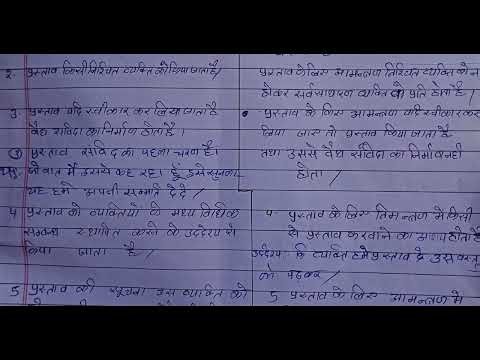 २. प्रस्ताव किसी निश्चित व्यक्ति को किया जाता है।
३. प्रस्ताव यदि स्वीकार कर लिया जाता है
वैध संविदा का निर्माण होता है।
प्रस्ताव संविदा का पहला चरण है।
जो बात मैं उससे कह रहा हूँ उसे सुनना
वह हमें अपनी सम्मति दे दे।
4 प्रस्ताव को व्यक्तियों के मध्य विधिक
सम्बन्ध स्थापित करने के उद्देश्य से
किया जाता है।
5 प्रस्ताव की सूचना उस व्यक्ति को
प्रस्ताव के लिए आमन्त्रण निश्चित व्यक्ति को न
होकर सर्वसाधारण व्यक्ति के प्रति होता है।
प्रस्ताव के लिए आमन्त्रण यदि स्वीकार कर
लिया जाए तो प्रस्ताव किया जाता है
तथा उससे वैध संविदा का निर्माण नही
होता।
4. प्रस्ताव के लिए निमन्त्रण में किसी
से प्रस्ताव करवाने का आशय होता है
उद्देश्य कि व्यक्ति हमें प्रस्ताव दे उस वस्तु
को पढ़कर।
5 प्रस्ताव के लिए आमन्त्रण में